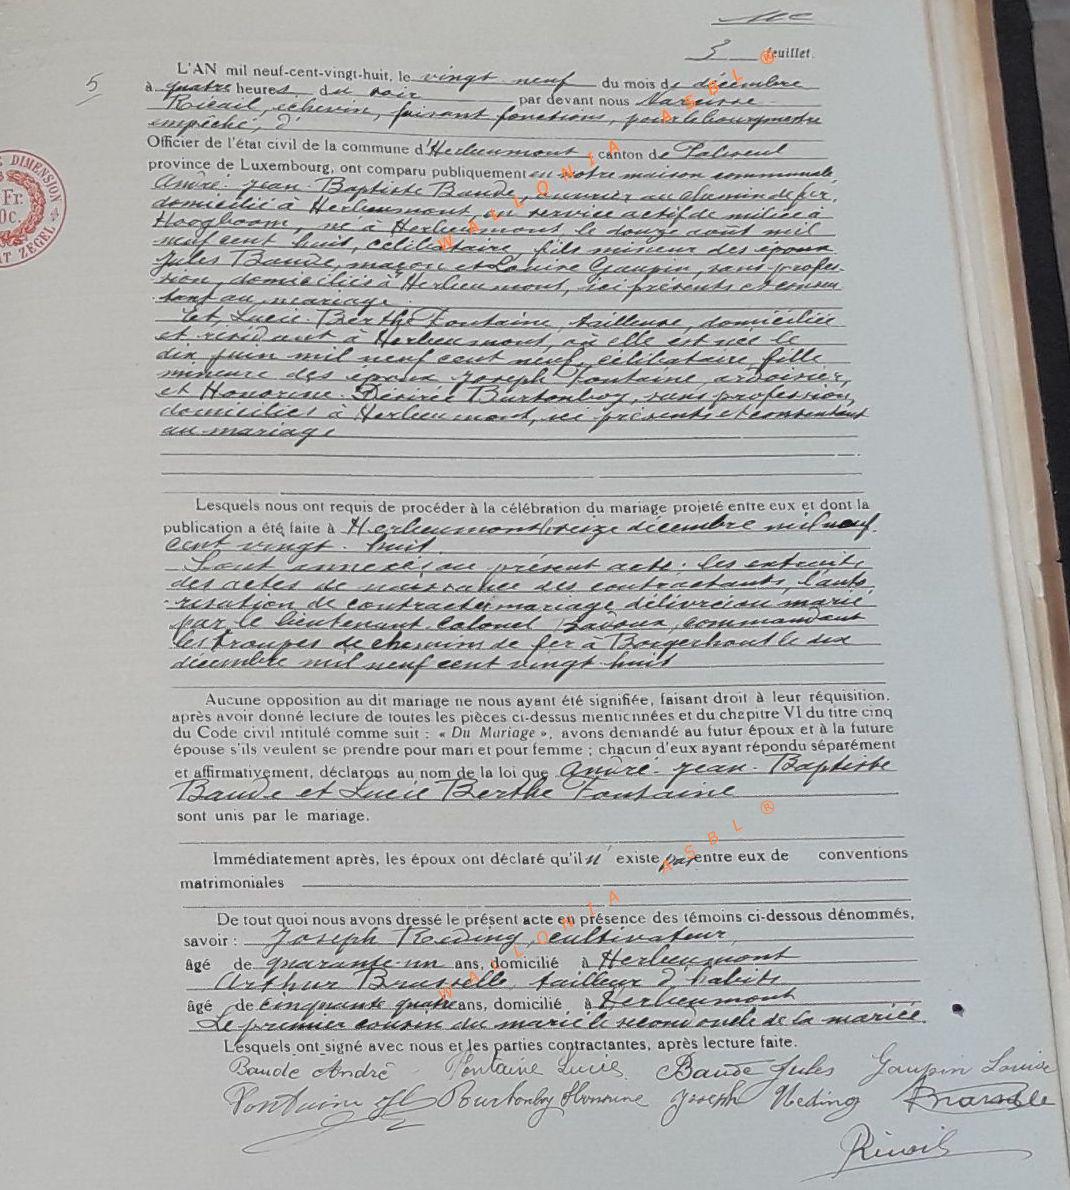 3 feuillet.
5
L'AN mil neuf-cent-vingt-huit, le vingt neuf du mois de décembre
à quatre heures du soir par devant nous Narcisse
échevin, faisant fonctions, pour le bourgmestre
empêché, d'
Officier de l'état civil de la commune d'Herbeumont canton de Paliseul
province de Luxembourg, ont comparu publiquement en notre maison communale,
André-Jean-Baptiste Baude, ouvrier au chemin de fer,
domicilié à Herbeumont, en service actif de milice à
Hoogboom, né à Herbeumont le douze août mil
neuf cent huit, célibataire, fils mineur des époux
Jules Baude, maçon et Louise Gaupin, sans profes-
sion, domiciliés à Herbeumont, ici présents et consen
tant au mariage
Et, Lucie-Berthe Fontaine, tailleuse, domiciliée
et résidant à Herbeumont, où elle est née le
dix juin mil neuf cent neuf, célibataire, fille
mineure des époux Joseph Fontaine, ardoisier,
et Honorine-Désirée Burtonboy, sans profession,
domiciliés à Herbeumont, ici présents et consentant
au mariage
Lesquels nous ont requis de procéder à la célébration du mariage projeté entre eux et dont la
publication a été faite à Herbeumont le seize décembre mil neuf
cent vingt-huit.
Sont annexés au présent acte: les extraits
des actes de naissance des contractants, l'auto
risation de contracter mariage délivrée au marié
par le lieutenant Colonel commandant
les troupes de chemins de fer à Borgerhout le six
décembre mil neuf cent vingt-huit
Aucune opposition au dit mariage ne nous ayant été signifiée, faisant droit à leur réquisition.
après avoir donné lecture de toutes les pièces ci-dessus mentionnées et du chapitre VI du titre cinq
du Code civil intitulé comme suit : « Du Mariage », avons demandé au futur époux et à la future
épouse s'ils veulent se prendre pour mari et pour femme ; chacun d'eux ayant répondu séparément
et affirmativement, déclarons au nom de la loi que André-Jean-Baptiste
Baude et Lucie Berthe Fontaine
sont unis par le mariage.
Immédiatement après, les époux ont déclaré qu'il n' existe pas entre eux de conventions
matrimoniales
De tout quoi nous avons dressé le présent acte en présence des témoins ci-dessous dénommés,
savoir : Joseph Reding, cultivateur,
âgé de quarante-un ans, domicilié à Herbeumont
Arthur tailleur d'habits
âgé de cinquante quatre ans, domicilié à Herbeumont
Le premier cousin du marié le second oncle de la mariée.
Lesquels ont signé avec nous et les parties contractantes, après lecture faite.
Baude André Fontaine Lucie Baude Jules Gaupin Louise
Fontaine Burtonboy Honorine Joseph Reding
WALLONIA ASBL ®
WALLONIA ASBL ®